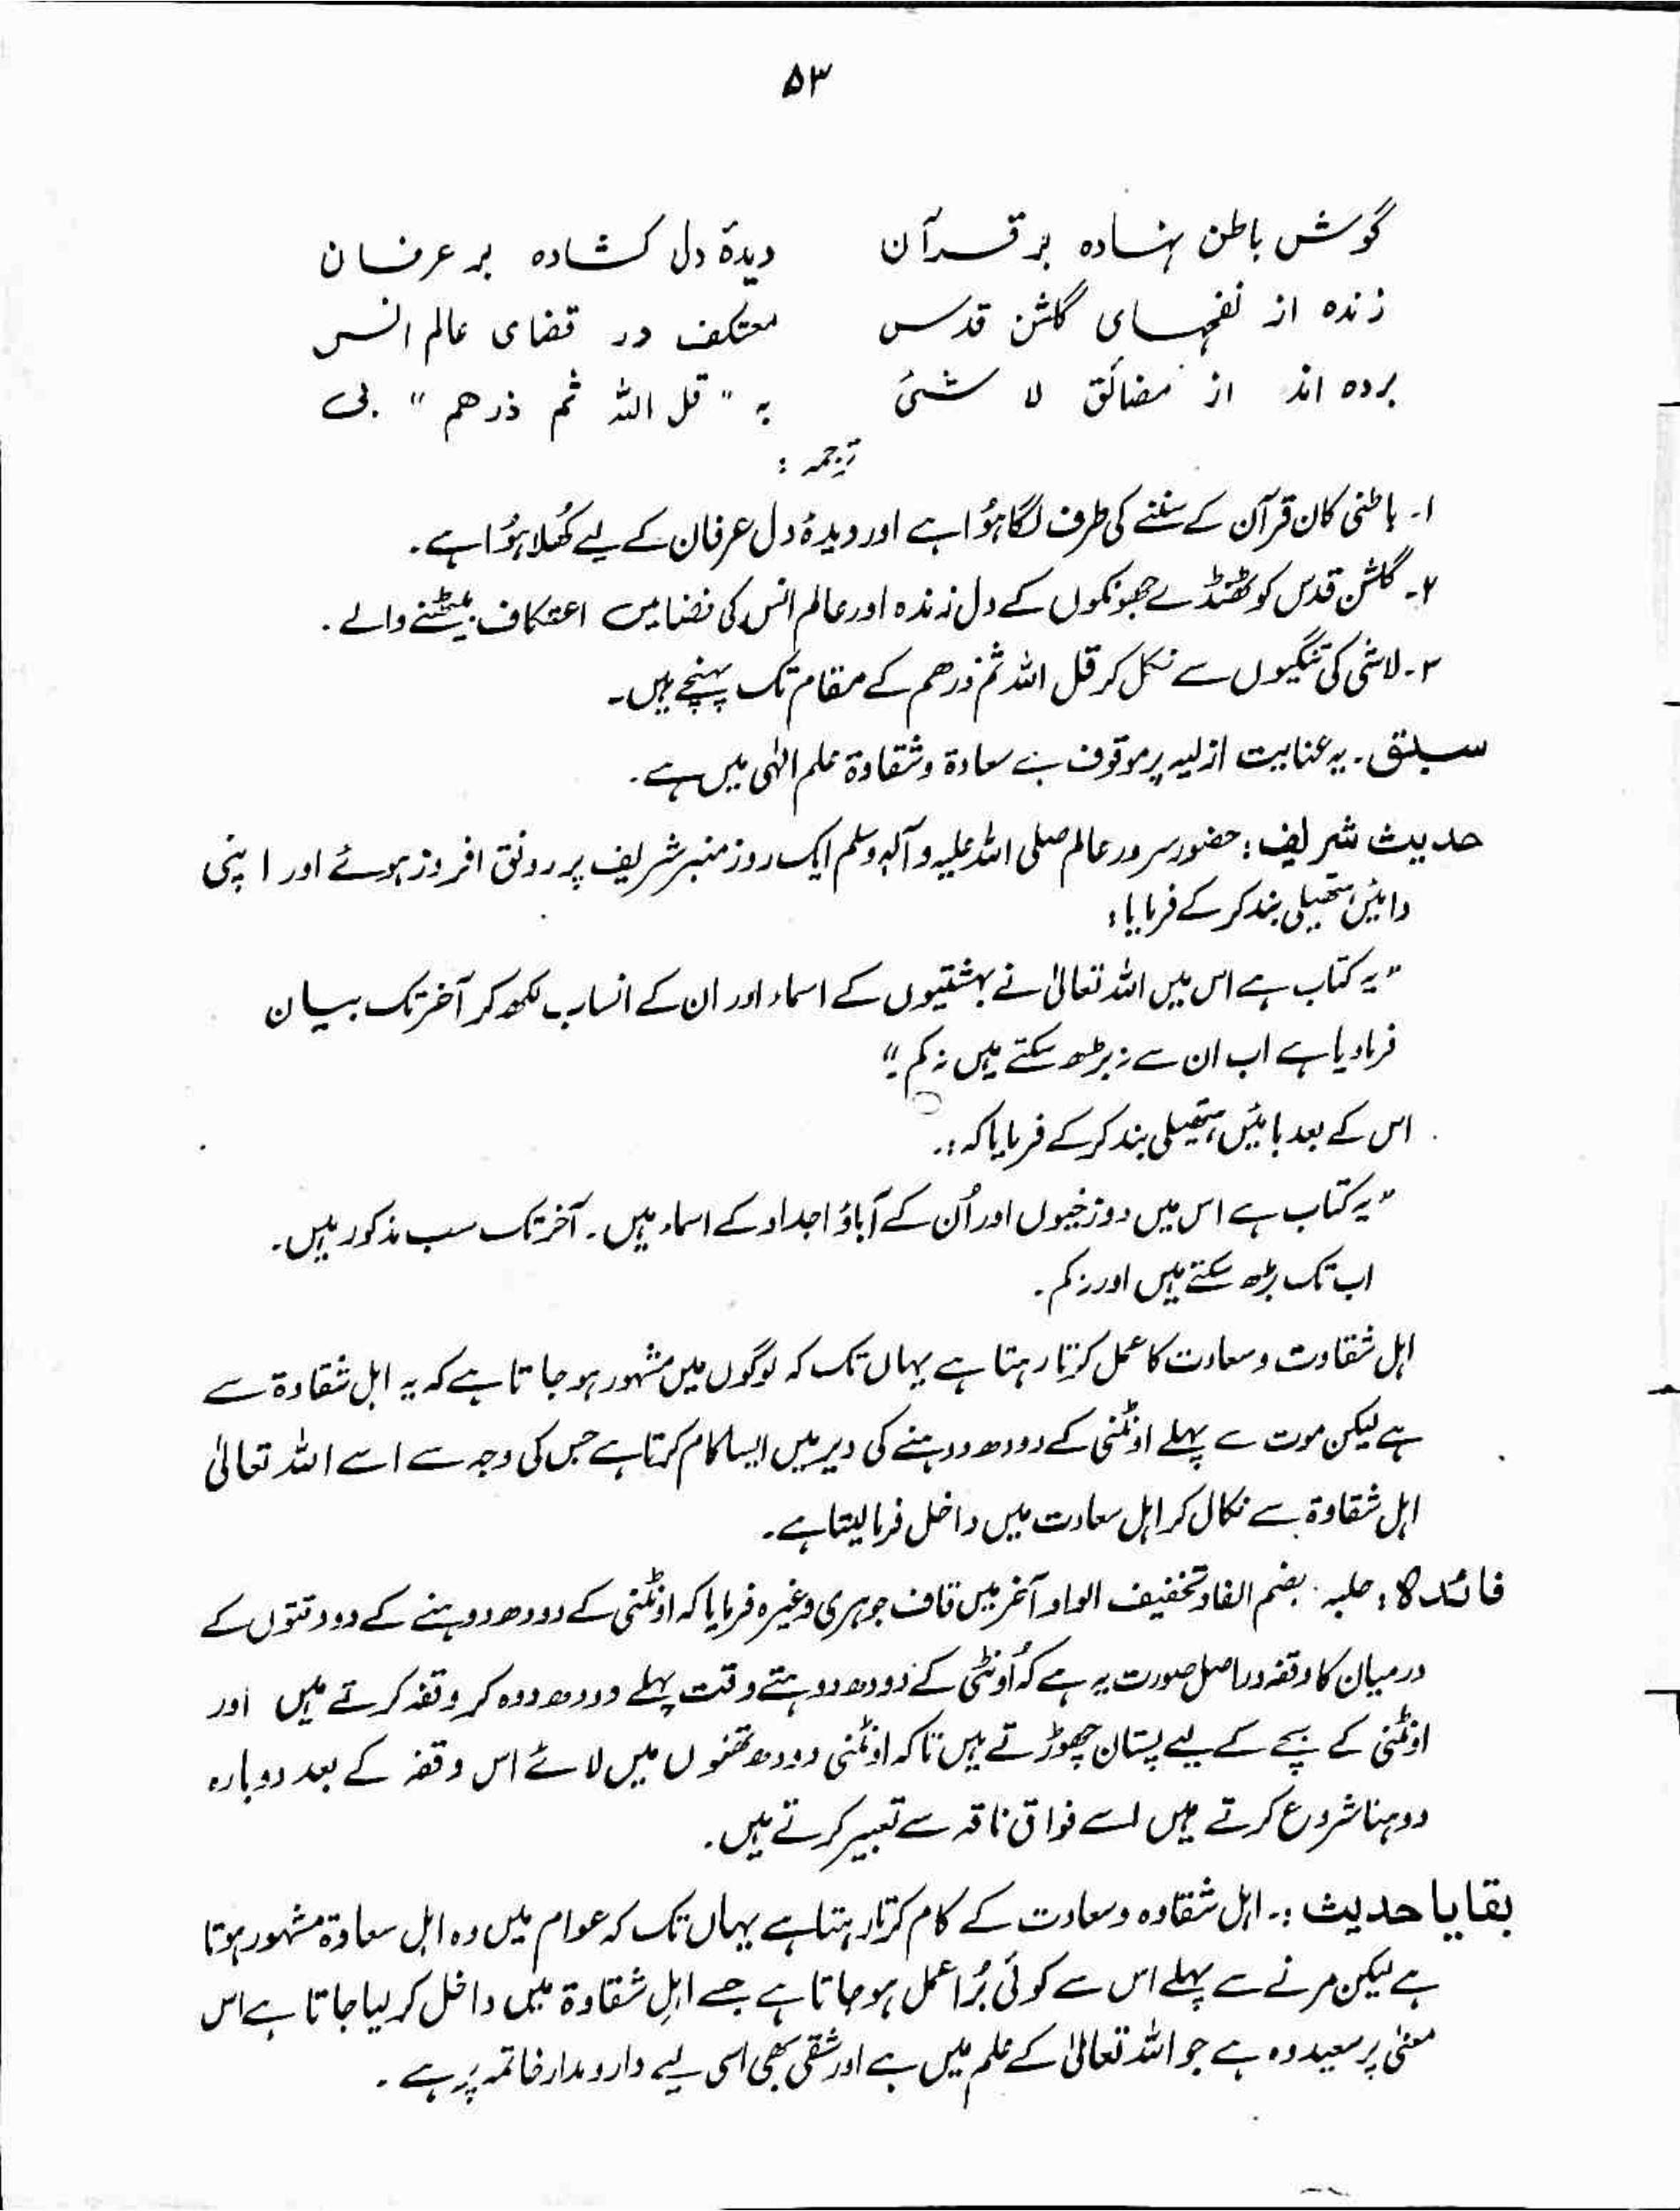 ۵۳
گوش باطن نہادہ بر قرآن دیدۂ دل کشادہ بر عرفان
زندہ از نفحہای گلشن قدس معتکف در فضای عالم انس
بردہ اند از مضائق لا شئ بہ "قل اللہ ثم ذرھم" پی
ترجمہ :
۱۔ باطنی کان قرآن کے سننے کی طرف لگا ہُوا ہے اور دیدۂ دل عرفان کے لیے کُھلا ہُوا ہے۔
۲۔ گلشن قدس کو ٹھنڈے جھونکوں کے دل زندہ اور عالم انس کی فضا میں اعتکاف بیٹھنے والے ۔
۳۔ لاشی کی تنگیوں سے نکل کر قل اللہ ثم ذرھم کے مقام تک پہنچے ہیں۔
سبق ۔ یہ عنایت ازلیہ پر موقوف ہے سعادۃ و شقاوۃ علم الٰہی میں ہے۔
حدیث شریف : حضور سرور عالم صلی اللہ علیہ وآلہٖ وسلم ایک روز منبر شریف پر رونق افروز ہوئے اور اپنی
دائیں ہتھیلی بند کر کے فرمایا :
"یہ کتاب ہے اس میں اللہ تعالیٰ نے بہشتیوں کے اسماء اور ان کے انساب لکھ کر آخر تک بیان
فرما دیا ہے اب ان سے نہ بڑھ سکتے ہیں نہ کم۔"
اس کے بعد بائیں ہتھیلی بند کر کے فرمایا کہ :۔
"یہ کتاب ہے اس میں دوزخیوں اور اُن کے آباؤ اجداد کے اسماء ہیں۔ آخر تک سب مذکور ہیں۔
اب تک بڑھ سکتے ہیں اور نہ کم۔
اہل شقاوت و سعادت کا عمل کرتا رہتا ہے یہاں تک کہ لوگوں میں مشہور ہو جاتا ہے کہ یہ اہل شقاوۃ سے
ہے لیکن موت سے پہلے اونٹنی کے دودھ دوہنے کی دیر میں ایسا کام کرتا ہے جس کی وجہ سے اسے اللہ تعالیٰ
اہل شقاوۃ سے نکال کر اہل سعادت میں داخل فرما لیتا ہے۔
فائدہ : حلبہ۔ بضم الفاد تخفیف الواد آخر میں قاف جوہری وغیرہ فرمایا کہ اونٹنی کے دودھ دوہنے کے دو وقتوں کے
درمیان کا وقفہ دراصل صورت یہ ہے کہ اُونٹنی کے دودھ دوہتے وقت پہلے دودھ دوہ کر وقفہ کرتے ہیں اور
اونٹنی کے بچے کے لیے پستان چھوڑتے ہیں تاکہ اونٹنی دودھ تھنوں میں لائے اس وقفہ کے بعد دوبارہ
دوہنا شروع کرتے ہیں اسے فواق ناقہ سے تعبیر کرتے ہیں۔
بقایا حدیث :۔ اہل شقاوہ و سعادت کے کام کرتا رہتا ہے یہاں تک کہ عوام میں وہ اہل سعادۃ مشہور ہوتا
ہے لیکن مرنے سے پہلے اس سے کوئی بُرا عمل ہو جاتا ہے جسے اہلِ شقاوۃ میں داخل کر لیا جاتا ہے اس
معنٰی پر سعید وہ ہے جو اللہ تعالیٰ کے علم میں ہے اور شقی بھی اسی لیے دارومدار خاتمہ پر ہے ۔